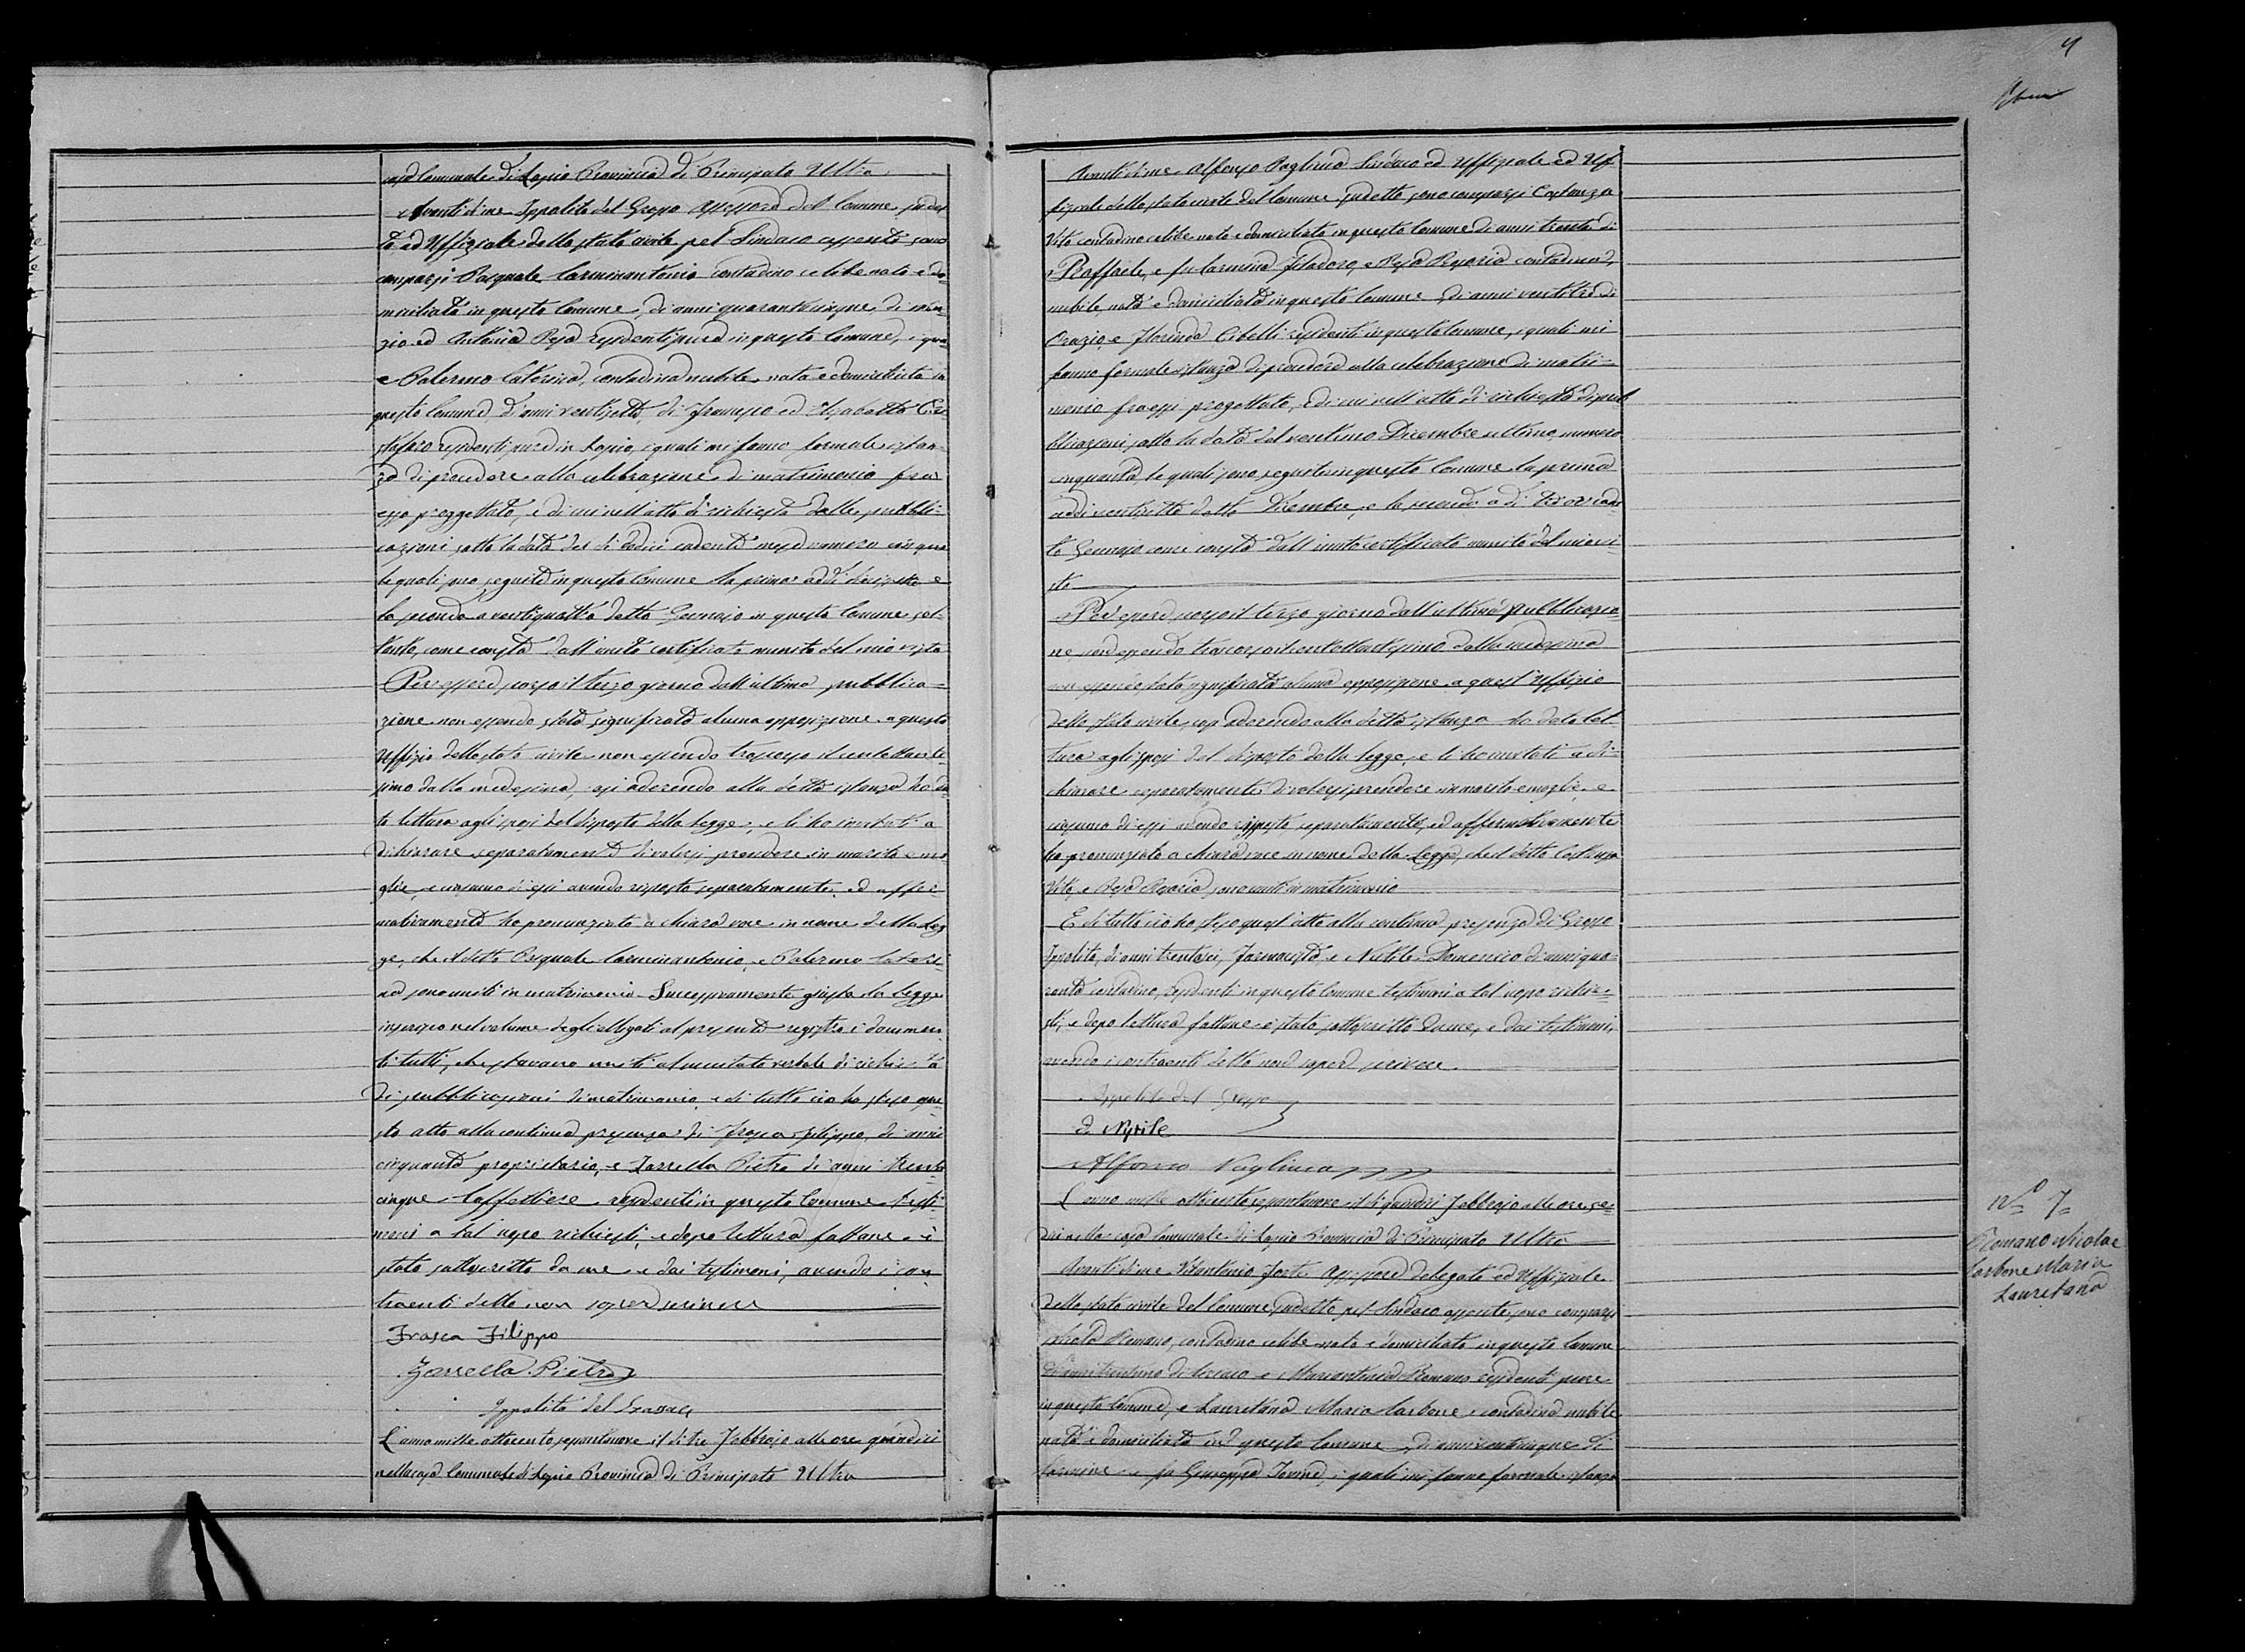 casa Comunale di Lapio Provincia di Principato Ultra
Avanti di me Ippolito del Grosso Assessore del Comune sudet
to ed Uffiziale dello stato civile pel Sindaco assente sono
comparsi Pasquale Carminantonio contadino celibe nato e do
miciliato in questo Comune, di anni quarantacinque, di
zio ed Antonia Resa residenti pure in questo Comune,
e Palermo Caterina, contadina nubile, nata e domiciliata in
questo Comune, d'anni ventisette, di Francesco ed Elisabetta
residenti pure in Lapio, i quali mi fanno formale istan
za di procedere alla celebrazione di matrimonio fra
essi progettato, e di cui nell'atto di richiesta delle pubbli
cazioni sotto la data del dì dodici cadente mese numero cinque
le quali sono seguite in questo Comune la prima addì e
la seconda a ventiquattro detto Gennajo in questo Comune sol
tanto, come consta dall'unito certificato munito del mio visto
Per essere scorso il terzo giorno dall'ultima pubblica
zione non essendo stata significata alcuna opposizione a questo
Uffizio dello stato civile non essendo trascorso il centottante
simo dalla medesima, così aderendo alla detta istanza ho da
to lettura agli sposi del disposto della legge, e li ho invitati a
dichiarare separatamente di volersi prendere in marito e mo
glie, e ciascuno di essi avendo risposto separatamente, ed affer
mativamente ho pronunziato a chiara voce in nome della Leg
ge, che il detto Pasquale Carminantonio, e Palermo Cateri
na sono uniti in matrimonio. Successivamente giusta la legge
inserisco nel volume degli allegati al presente registro i documen
ti tutti, che stavano uniti al succitato verbale di richiesta
di pubblicazioni di matrimonio e di tutto ciò ho steso que
sto atto alla continua presenza di Frasca Filippo, di anni
cinquanta proprietario, e Zarrella Pietro di anni trenta
cinque Caffettiere residenti in questo Comune testi
moni a tal uopo richiesti, e dopo lettura fattane è
stato sottoscritto da me e dai testimoni, avendo i con
traenti detto non sapere scrivere
Frasca Filippo
Zarrella Pietro
Ippolito del Grosso
L'anno mille ottocento settantanove il dì tre Febbrajo alle ore quindici
nella casa Comunale di Lapio Provincia di Principato Ultra
Avanti di me Alfonso Vagliuca Sindaco ed Uffiziale ed Uf
fiziale dello stato civile del Comune sudetto sono comparsi Costanza
Vito contadino celibe nato e domiciliato in questo Comune di anni trenta di
Raffaele, e fu Carmina Filadoro, e Resa Rosaria contadina,
nubile, nata e domiciliata in questo Comune, di anni ventitre di
Orazio, e Florinda Cibelli residenti in questo Comune, i quali mi
fanno formale istanza di procedere alla celebrazione di matri
monio fra essi progettato, e di cui nell'atto di richiesta di pub
blicazioni sotto la data del ventuno Dicembre ultimo numero
cinquanta, le quali sono seguite in questo Comune la prima
addì ventisette detto Dicembre, e la seconda a dì tre
to Gennajo come consta dall'unito certificato munito del mio vi
sto
Per essere scorso il terzo giorno dall'ultima pubblicazio
ne, non essendo trascorso il centottantesimo dalla medesima
non essendo stata significata alcuna opposizione a quest'Uffizio
dello stato civile, così aderendo alla detta istanza ho dato let
tura agli sposi del disposto della legge, e li ho invitati a di
chiarare separatamente di volersi prendere in marito e moglie, e
ciascuno di essi avendo risposto separatamente, ed affermativamente
ho pronunziato a chiara voce in nome della Legge, che il detto Costanza
Vito, e Resa Rosaria sono uniti in matrimonio
E di tutto ciò ho steso quest'atto alla continua presenza di Grosso
Ippolito, di anni trentasei, Farmacista, e Nittile Domenico di anni qua
ranta contadino, residenti in questo Comune testimoni a tal uopo richie
sti, e dopo lettura fattane è stato sottoscritto da me, e dai testimoni,
avendo i contraenti detto non sapere scrivere.
Ippolito del Grosso
Alfonso Vagliuca
L'anno mille ottocento settantanove il dì quindici Febbrajo alle ore se
dici nella casa Comunale di Lapio Provincia di Principato Ultra
Avanti di me Vitantonio Forte Assessore delegato ed Uffiziale
dello stato civile del Comune sudetto pel Sindaco assente, sono comparsi
Nicola Romano, contadino celibe nato e domiciliato in questo Comune
di anni trentuno di Ciriaco e Mariantonia Romano residenti pure
in questo Comune, e Lauretana Maria Carbone contadina nubile
nata e domiciliata in questo Comune, di anni venticinque di
Carmine e fu Giuseppa Iovine, i quali mi fanno formale istanza
N.° 7
Romano Nicola e
Carbone Maria
Lauretana